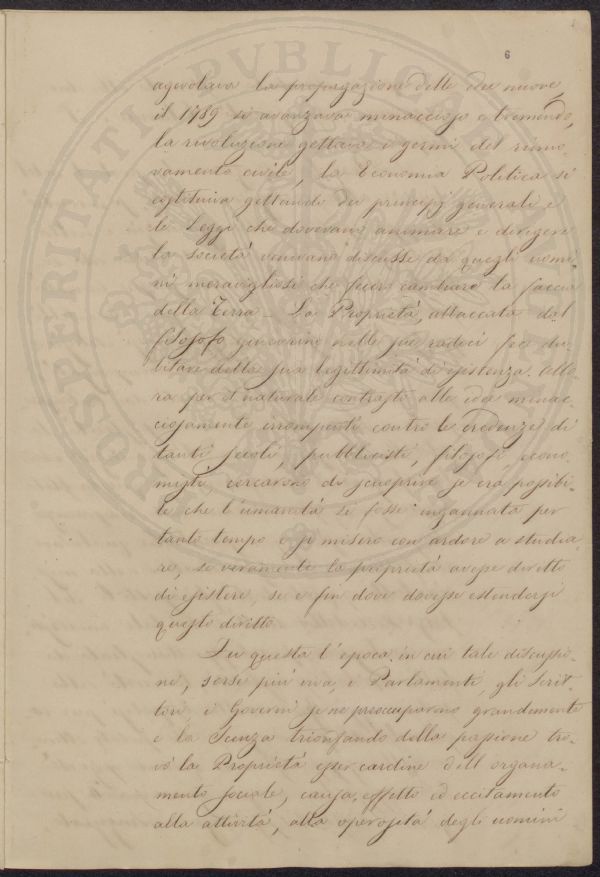 6
agevolava la propagazione delle idee nuove,
il 1789 si avanzava minaccioso e tremendo,
la rivoluzione gettava i germi del rinno-
vamento civile, la Economia Politica si
costituiva gettando dei principj generali e
le Leggi che dovevano animare e dirigere
la società venivano discusse da quegli uomi
ni meravigliosi che fecero cambiare la faccia
della Terra – La Proprietà, attaccata dal
filosofo ginevrino nelle sue radici fece du-
bitare della sua legittimità di esistenza. Allo-
ra per il naturale contrasto alle idee minac
ciosamente irrompenti contro le credenze di
tanti secoli, pubblicisti, filosofi, econo-
misti, cercarono di scuoprire se era possibi-
le che l'umanità si fosse ingannata per
tanto tempo e si misero con ardore a studia-
re, se veramente la proprietà avesse diritto
di esistere, se e fin dove dovesse estendersi
questo diritto.
Fu questa l'epoca in cui tale discussio-
ne, sorse più viva, i Parlamenti, gli Scrit-
tori i Governi se ne preoccuparono grandemente
e la Scenza trionfando della passione tro-
vò la Proprietà esser cardine dell organa-
mento sociale, causa, effetto ed eccitamento
alla attività, alla operosità degli uomini
PROSPERITATI PVBLICAE AVGENDAE